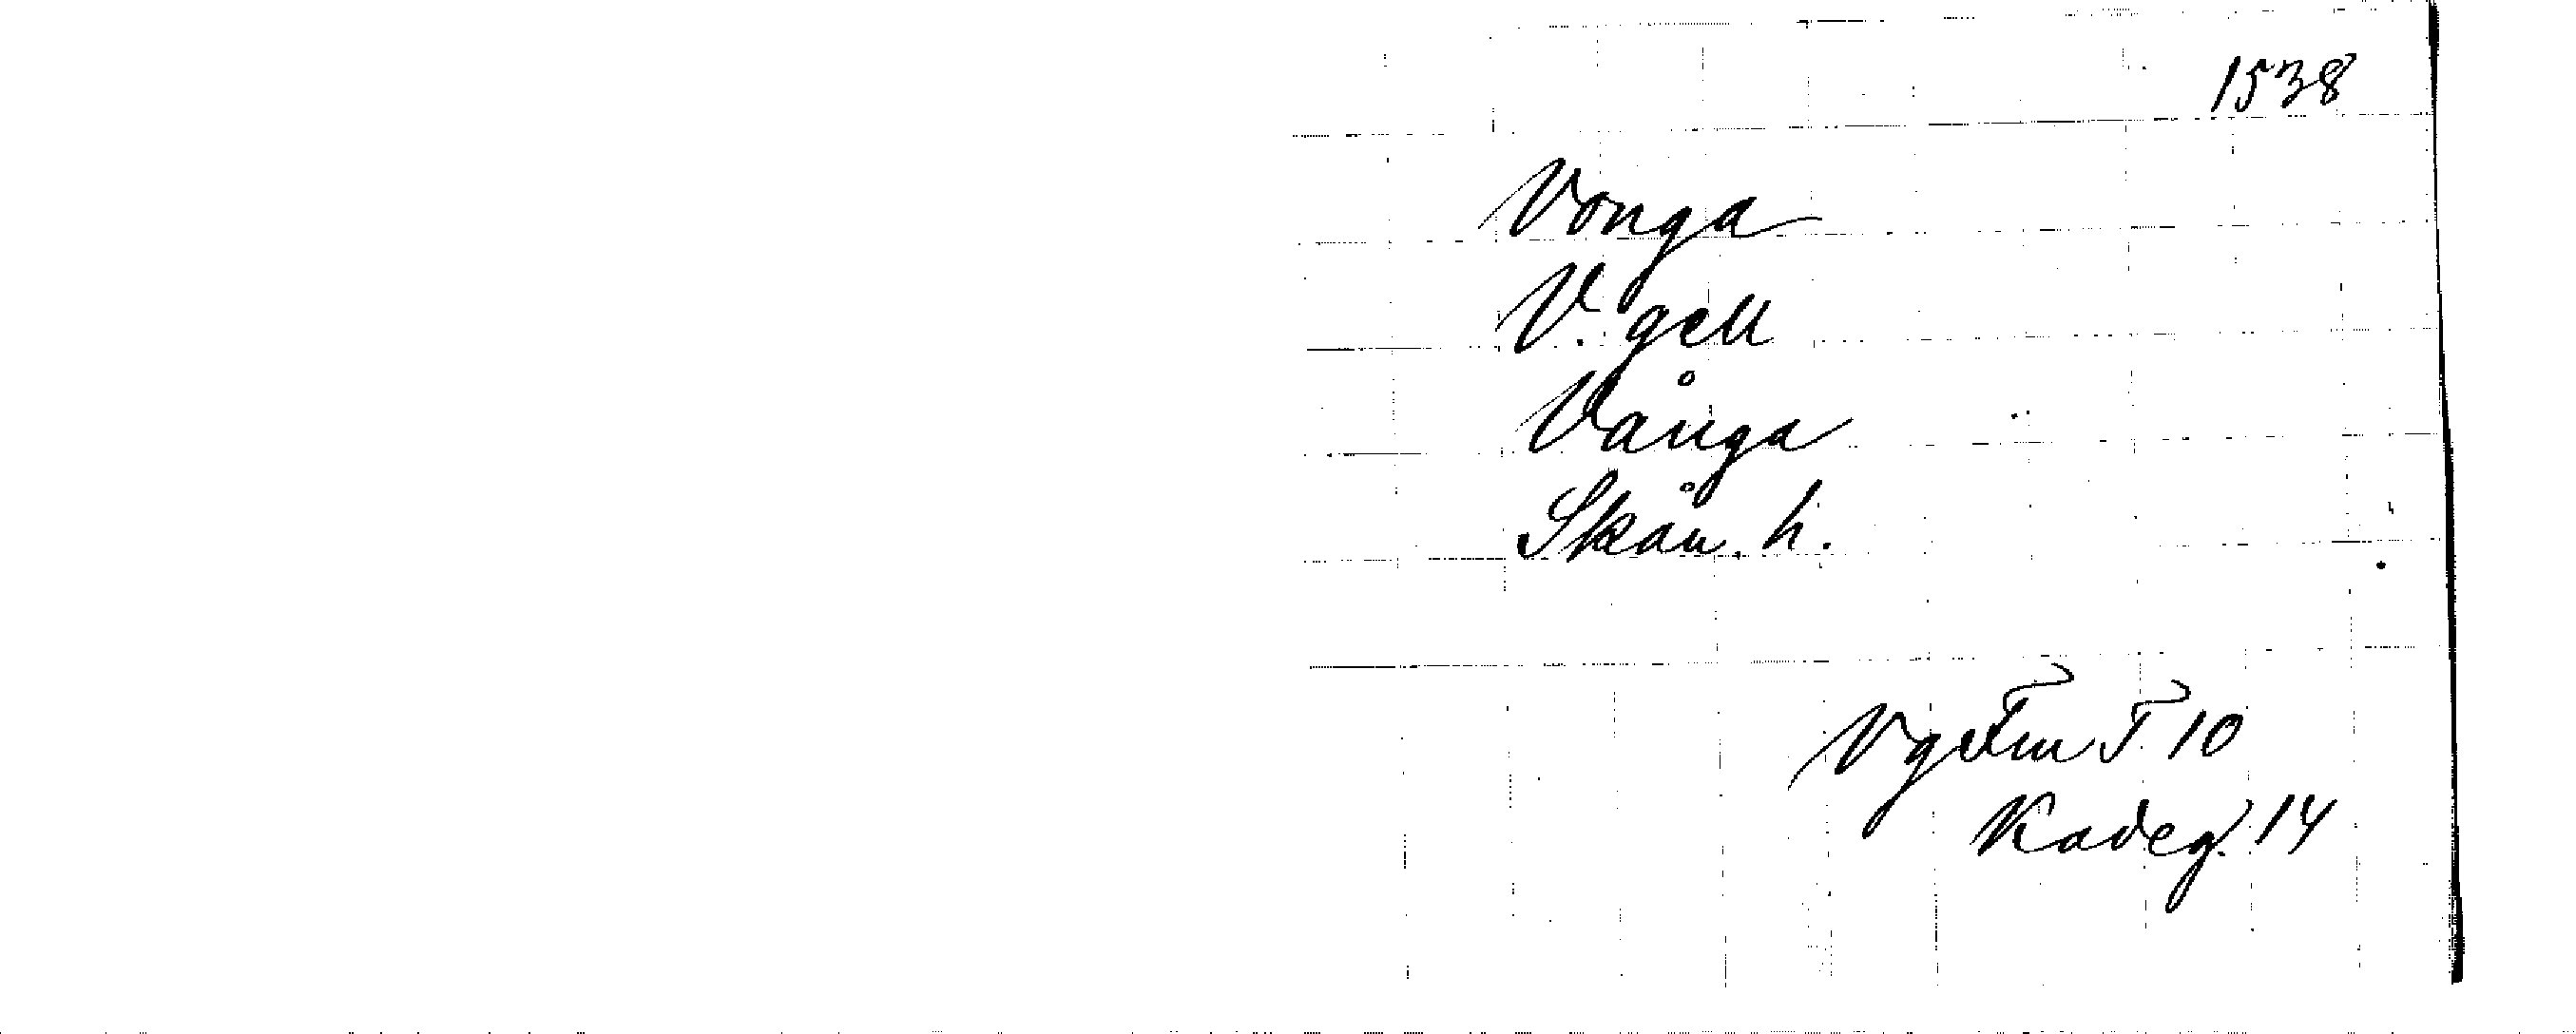 1538
Vonga
V. gell
Vånga
Skån. h.
Vg Fm T 10
Kadeg. 14